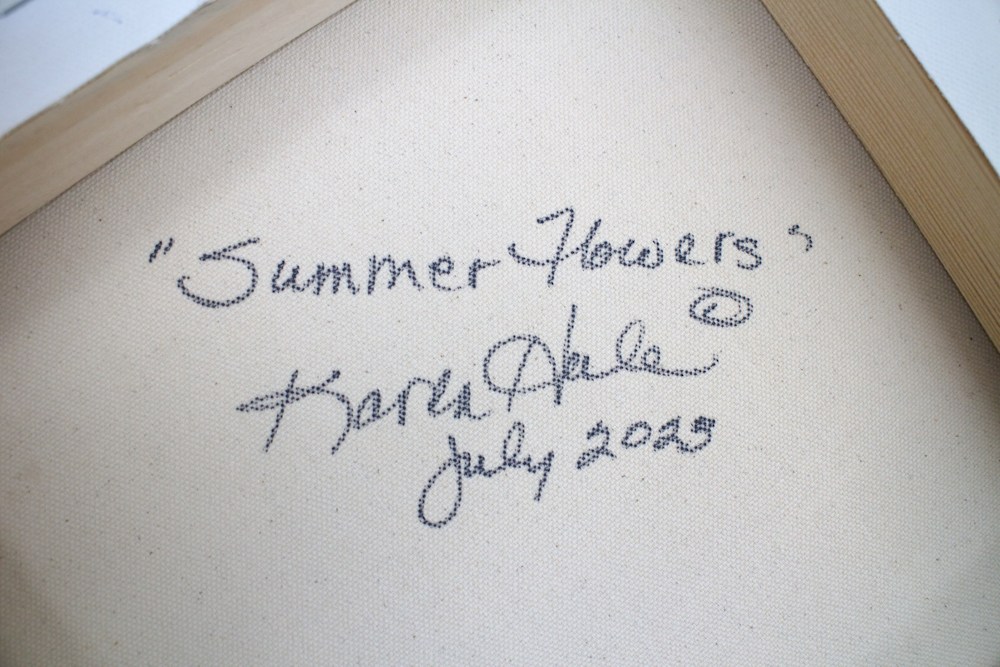 "Summer Flowers"
©
Karen Hale
July 2023